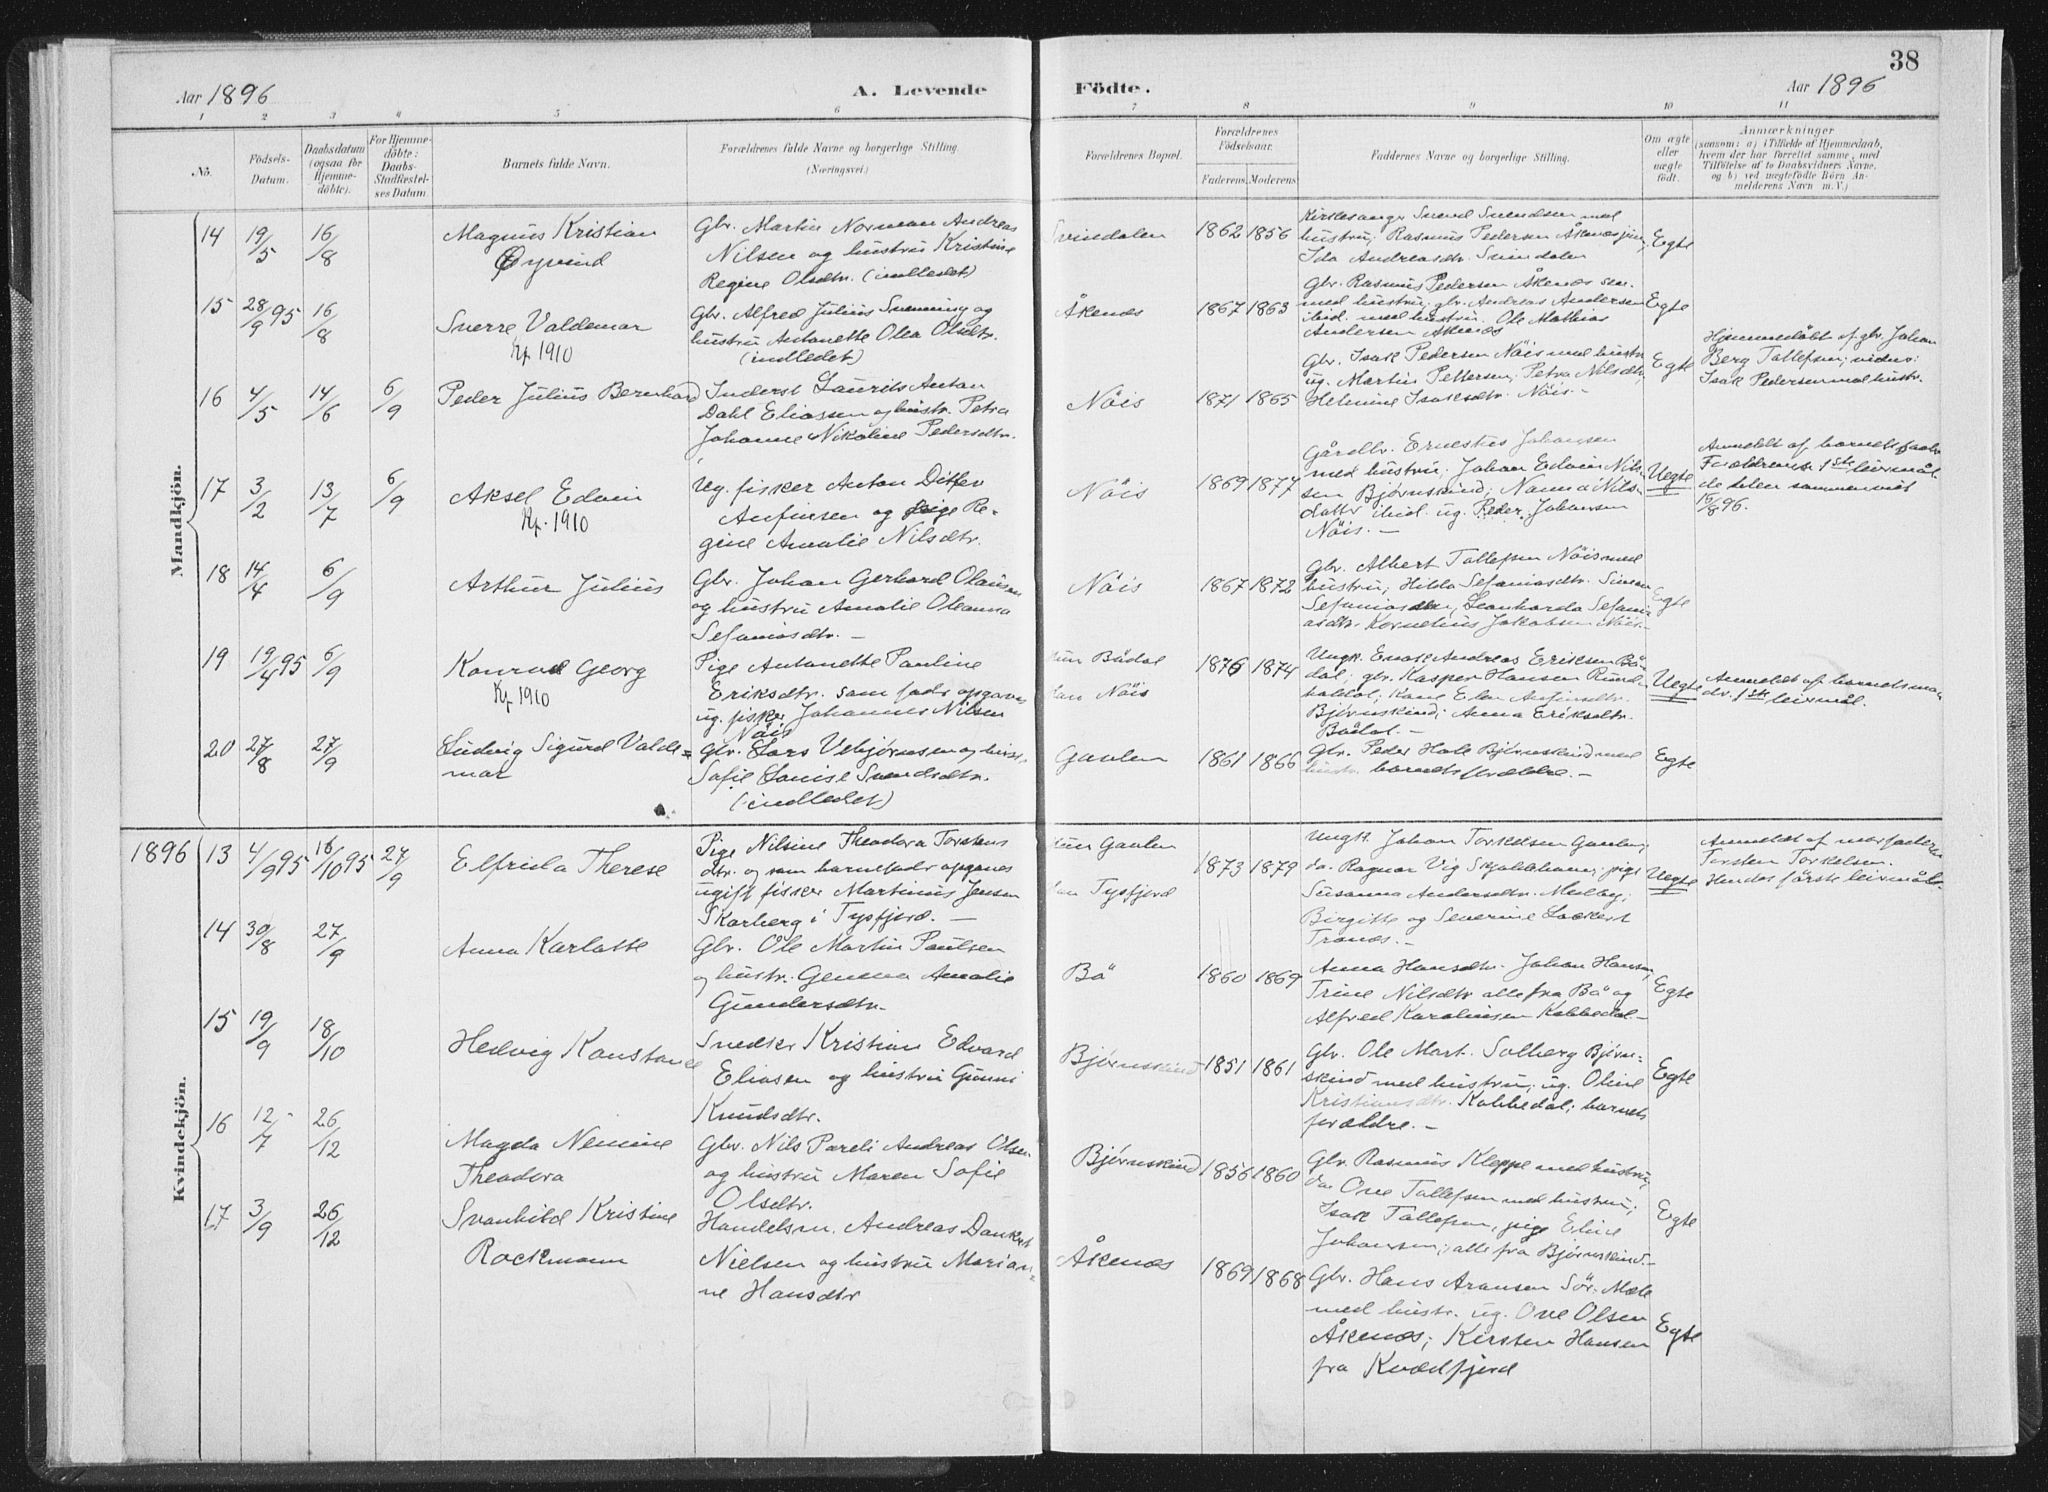 38
Aar 1896 A. Levende Födte. Aar 1896
1 2 3 4 5 6 7 8 9 10 11
No.
Födsels-Datum.
Daabsdatum (ogsaa for Hjemme-döbte).
For Hjemme-döbte: Daabs-Stadfæstel-ses Datum.
Barnets fulde Navn.
Forældrenes fulde Navne og borgerlige Stilling.
(Næringsvei.)
Forældrenes Bopæl.
Forældrenes Födselsaar.
Faderens. Moderens.
Faddernes Navne og borgerlige Stilling.
Om ægte eller uægte födt.
Anmærkninger
(saasom: a) i Tilfælde af Hjemmedaab,
hvem der har forrettet samme, med
Tilföielse af to Daabsvidners Navne,
og b) ved uægtefödte Börn An-
melderens Navn m. V.)
Mandkjön.
14 19/5 16/8 Magnus Kristian
Øyvind
Gbr. Martin Norman Andreas
Nilsen og hustru Kristine
Regine Olsdtr. (indledet)
Svindalen 1862 1856
Kirkesanger Svend Svendsen med
hustru; Rasmus Pedersen Åkenæs jun.;
Ida Andreasdtr. Svindalen
Egte
15 28/9 95 16/8 Sverre Valdemar
Kf. 1910
Gbr. Alfred Julius Svenning og
hustru Antonette Olea Olsdtr.
(indledet)
Åkenæs 1867 1863
Gbr. Rasmus Pedersen Åkenæs sen.
med hustru; gbr. Andreas Andersen
ibid. med hustru. Ole Mathias
Andersen Åkenæs
Egte
16 4/5 14/6 6/9 Peder Julius Bernhard
Inderst Laurits Anton
Dahl Eliassen og hustr. Petra
Johanne Nikoline Pedersdtr.
Nöis 1871 1865
Gbr. Isak Pedersen Nöis med hustr.
ug. Martin Pettersen; Petra Nilsdtr,
Helmine Isaksdtr. Nöis.-
Egte
Hjemmedöbt af gbr. Johan
Berg Tollefsen; vidner:
Isak Pedersen med hustr.
17 3/2 13/7 6/9 Aksel Edvin
Kf. 1910
Ug. fisker Anton Ditlev
Anfinsen og pige Re-
gine Amalie Nilsdtr.
Nöis 1869 1877
Gårdbr. Ernestus Johansen
med hustru; Johan Edvin Nils-
sen Bjørnskind; Nanna Nils-
datter ibid. ug. Peder Johansen
Nöis.-
Uegte
Anmeldt af barnets fader
Forældrenes 1ste leirmål
de telen sammenviet
16/8 96.
18 14/4 6/9 Arthur Julius
Gbr. Johan Gerhard Olaisen
og hustru Amalie Oleanna
Sefaniasdtr.-
Nöis 1867 1872
Gbr. Albert Tollefsen Nöis med
hustru; Hilda Sefaniasdtr. Simon
Sefaniassen, Leonharda Sefani-
asdtr. Kornelius Jakobsen Nöis.-
Egte
19 19/4 95 6/9 Konrad Georg
Kf. 1910
Pige Antonette Pauline
Eriksdtr. som fader opgaves
ug. fisker Johannes Nilsen
Nöis
hun Bådal
han Nöis
1876 1874
Ungk. Enok Andreas Eriksen Bå-
dal; gbr. Kasper Hansen
Bjørnskind; Anna Eriksdtr.
Bådal.-
Uegte
Anmeldt af barnets mo-
der. 1ste leirmål.
20 27/8 27/9 Ludvig Sigurd Valde-
mar
Gbr. Lars Vebjørnsen og hustr.
Sofie Louise Svendsdtr.
(indledet)
Gavlen 1861 1866
Gbr. Peder Hole Bjørnskind med
hustr. barnets forældre.-
Egte
Kvindekjön.
1896 13 4/9 95 16/10 95 27/9 Elfrida Therese
Pige Nilsine Theodora Torstens-
dtr. og som barnefader opgaves
ugift fisker Martinus Jensen
Skarberg i Tysfjord.-
hun Gavlen
han Tysfjord
1873 1879
Ungk. Johan Torkelsen Gavlen;
do. Ragnar Vig Skjoldehavn; pige
Susanna Andersdtr. Melby;
Birgitte og Severine Lockert
Tranes.-
Uegte
Anmeldt af morfaderen
Torsten Torkelsen.
Hendes förste leirmål.
14 30/8 27/9 Anna Karlotte
Gbr. Ole Martin Paulsen
og hustr. Gemma Amalie
Gundersdtr.
Bö 1860 1869
Anna Hansdtr. Johan Hansen,
Trine Nilsdtr alle fra Bö og
Alfred Karolinsen Kobbedal.-
Egte
15 19/9 18/10 Hedvig Konstance
Snedker Kristian Edvard
Eliasen og hustru Gunni
Knudsdtr.
Bjørnskind 1851 1861
Gbr. Ole Mart. Solberg Bjørn-
skind med hustru; ug. Oline
Kristiansdtr. Kobbedal; barnets
forældre.-
Egte
16 12/7 26/12 Magda Nemine
Theodora
Gbr. Nils Pareli Andreas Olsen
og hustru Maren Sofie
Olsdtr.
Bjørnskind 1856 1860
Gbr. Rasmus Kleppe med hustru;
do Ove Tollefsen med hustru;
Isak Tollefsen, pige Eline
Johansen; alle fra Bjørnskind.-
Egte
17 3/9 26/12 Svanhild Kristine
Rockmann
Handelsm. Andreas Dankert
Nielsen og hustru Marian-
ne Hansdtr
Åkenæs 1869 1868
Gbr. Hans Aronsen Sör-Mele
med hustr. ug. Ove Olsen
Åkenæs; Kirsten Hansen
fra Kvædfjord
Egte